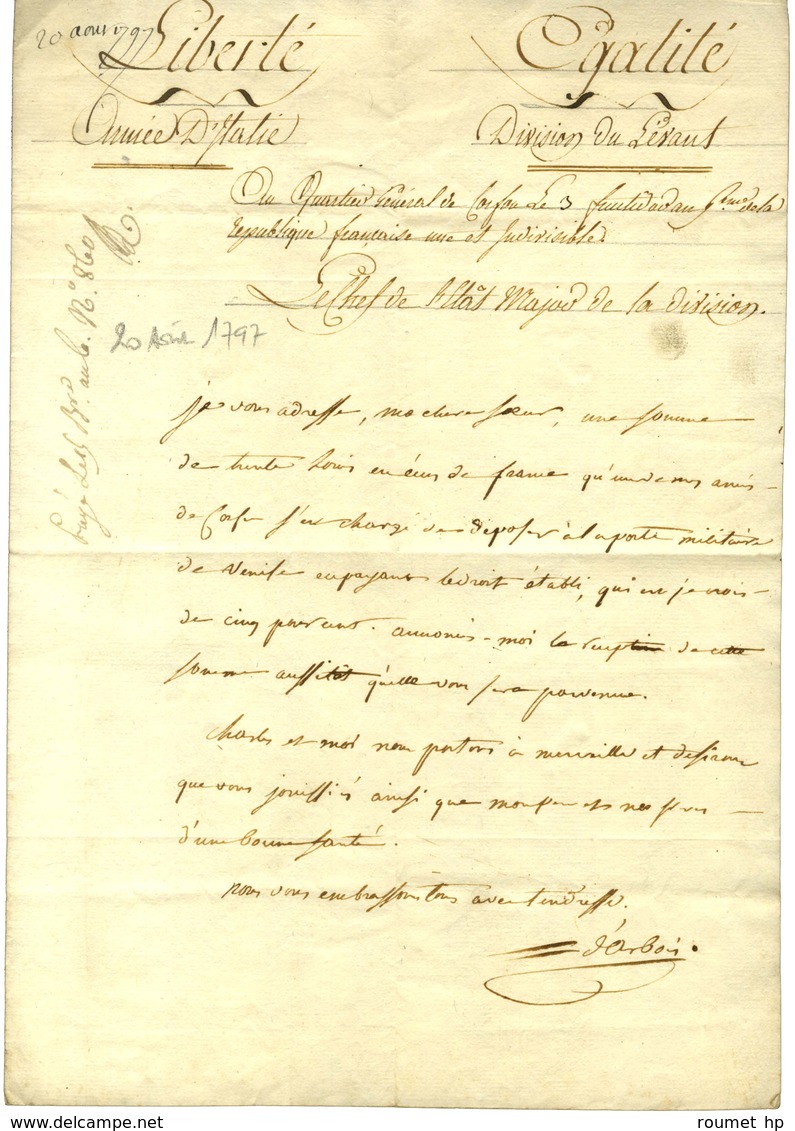 20 aout 1797
Liberté Egalité
Armée D'Italie Division du Lévant
Du Quartier Général de Corfou Le 3 fructidor an 5eme de la
république française une et Indivisible
Le Chef de l'état Major de la division.
20 Août 1797
payé Bre au N° 860
je vous adresse, ma chere sœur, une somme
de trente Louis en écus de france qu'un de mes amis
de Corfu s'est chargé de déposer à la poste militaire
de Venise en payant le droit établi, qui est je crois
de cinq pour cent. annoncés-moi la reception de cette
somme aussitôt qu'elle vous sera parvenue.
Charles et moi nous portons à merveille et desirons
que vous jouissiés ainsi que mon frere et nos sœurs
d'une bonne santé.
nous vous embrassons tous avec tendresse.
d'Arbois.
roumet hp
www.delcampe.net